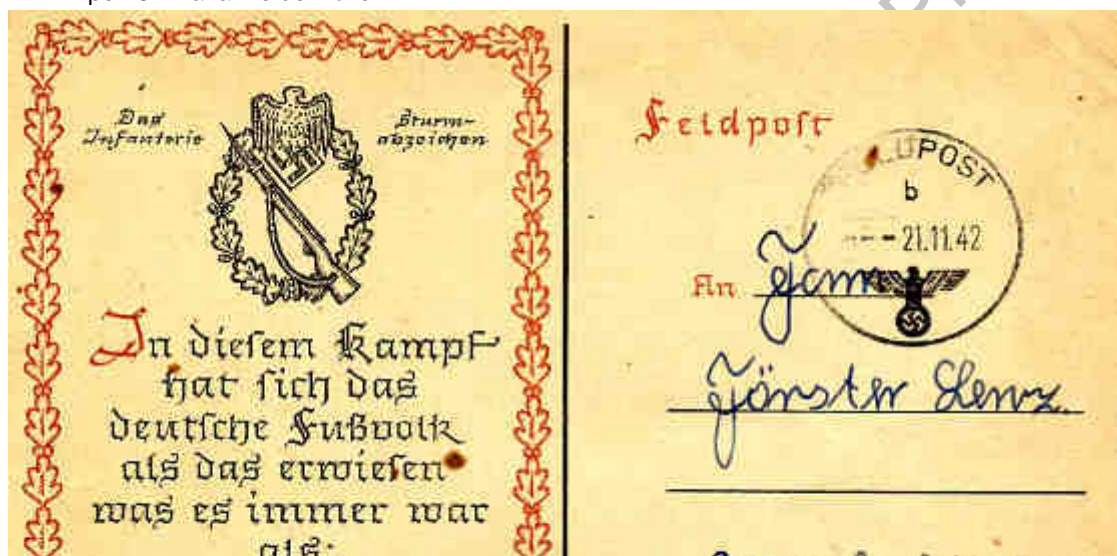 Das
Infanterie
Sturm-
abzeichen
In diesem Kampf
hat sich das
deutsche Fußvolk
als das erwiesen
was es immer war
als:
Feldpost
FELDPOST
b
-21.11.42
An
Förster Lenz.